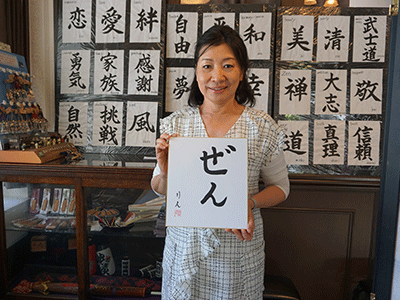 恋 愛 絆 自由 平和 美 清 武士道
勇気 家族 感謝 夢 幸 禅 大志 敬
自然 挑戦 風 道 真理 信頼
ぜん